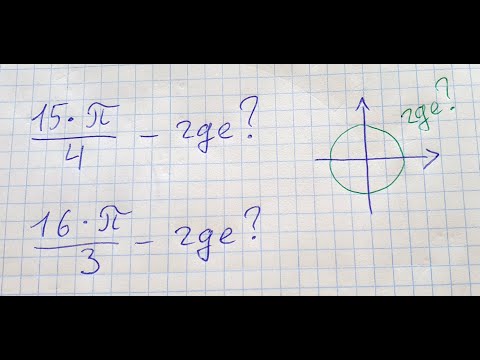 15·π/4 – где?
где?
16·π/3 – где?